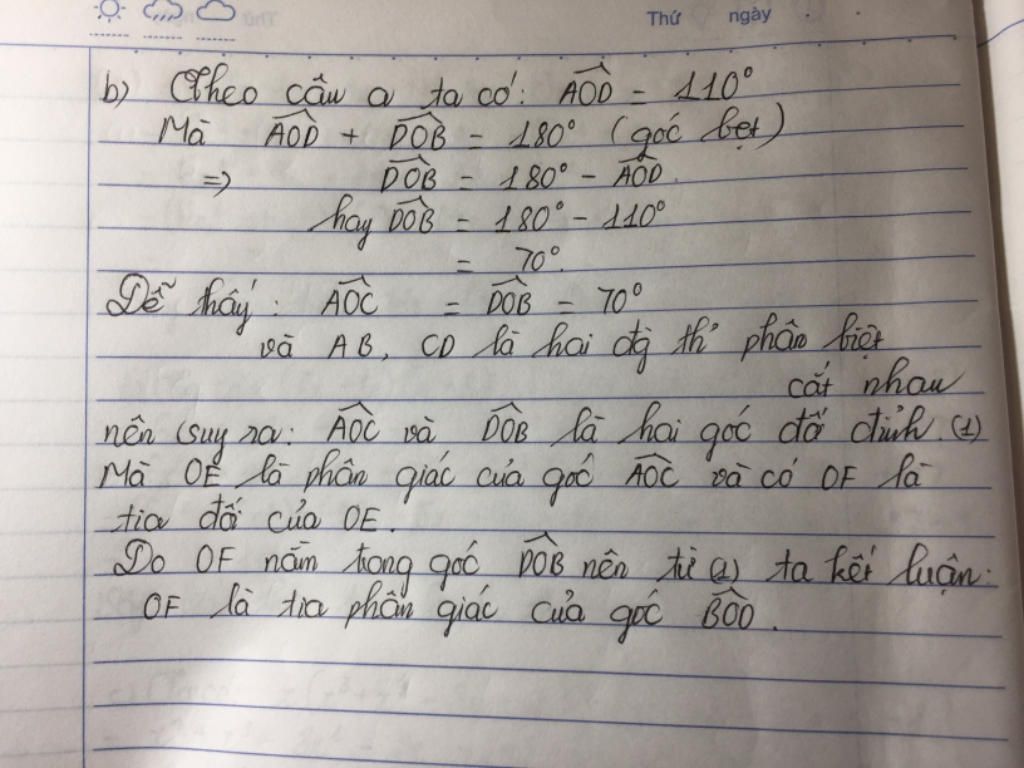 Thứ ngày
b) Theo câu a ta có: \widehat{AOD} = 110°
Mà \widehat{AOD} + \widehat{DOB} = 180° (góc bẹt)
=> \widehat{DOB} = 180° - \widehat{AOD}
hay \widehat{DOB} = 180° - 110°
= 70°.
Dễ thấy: \widehat{AOC} = \widehat{DOB} = 70°
và AB, CD là hai đg th° phân biệt
cắt nhau
nên (suy ra: \widehat{AOC} và \widehat{DOB} là hai góc đối đỉnh. (1)
Mà OE là phân giác của góc \widehat{AOC} và có OF là
tia đối của OE.
Do OF nằm trong góc \widehat{DOB} nên từ (1) ta kết luận:
OF là tia phân giác của góc \widehat{BOD}.